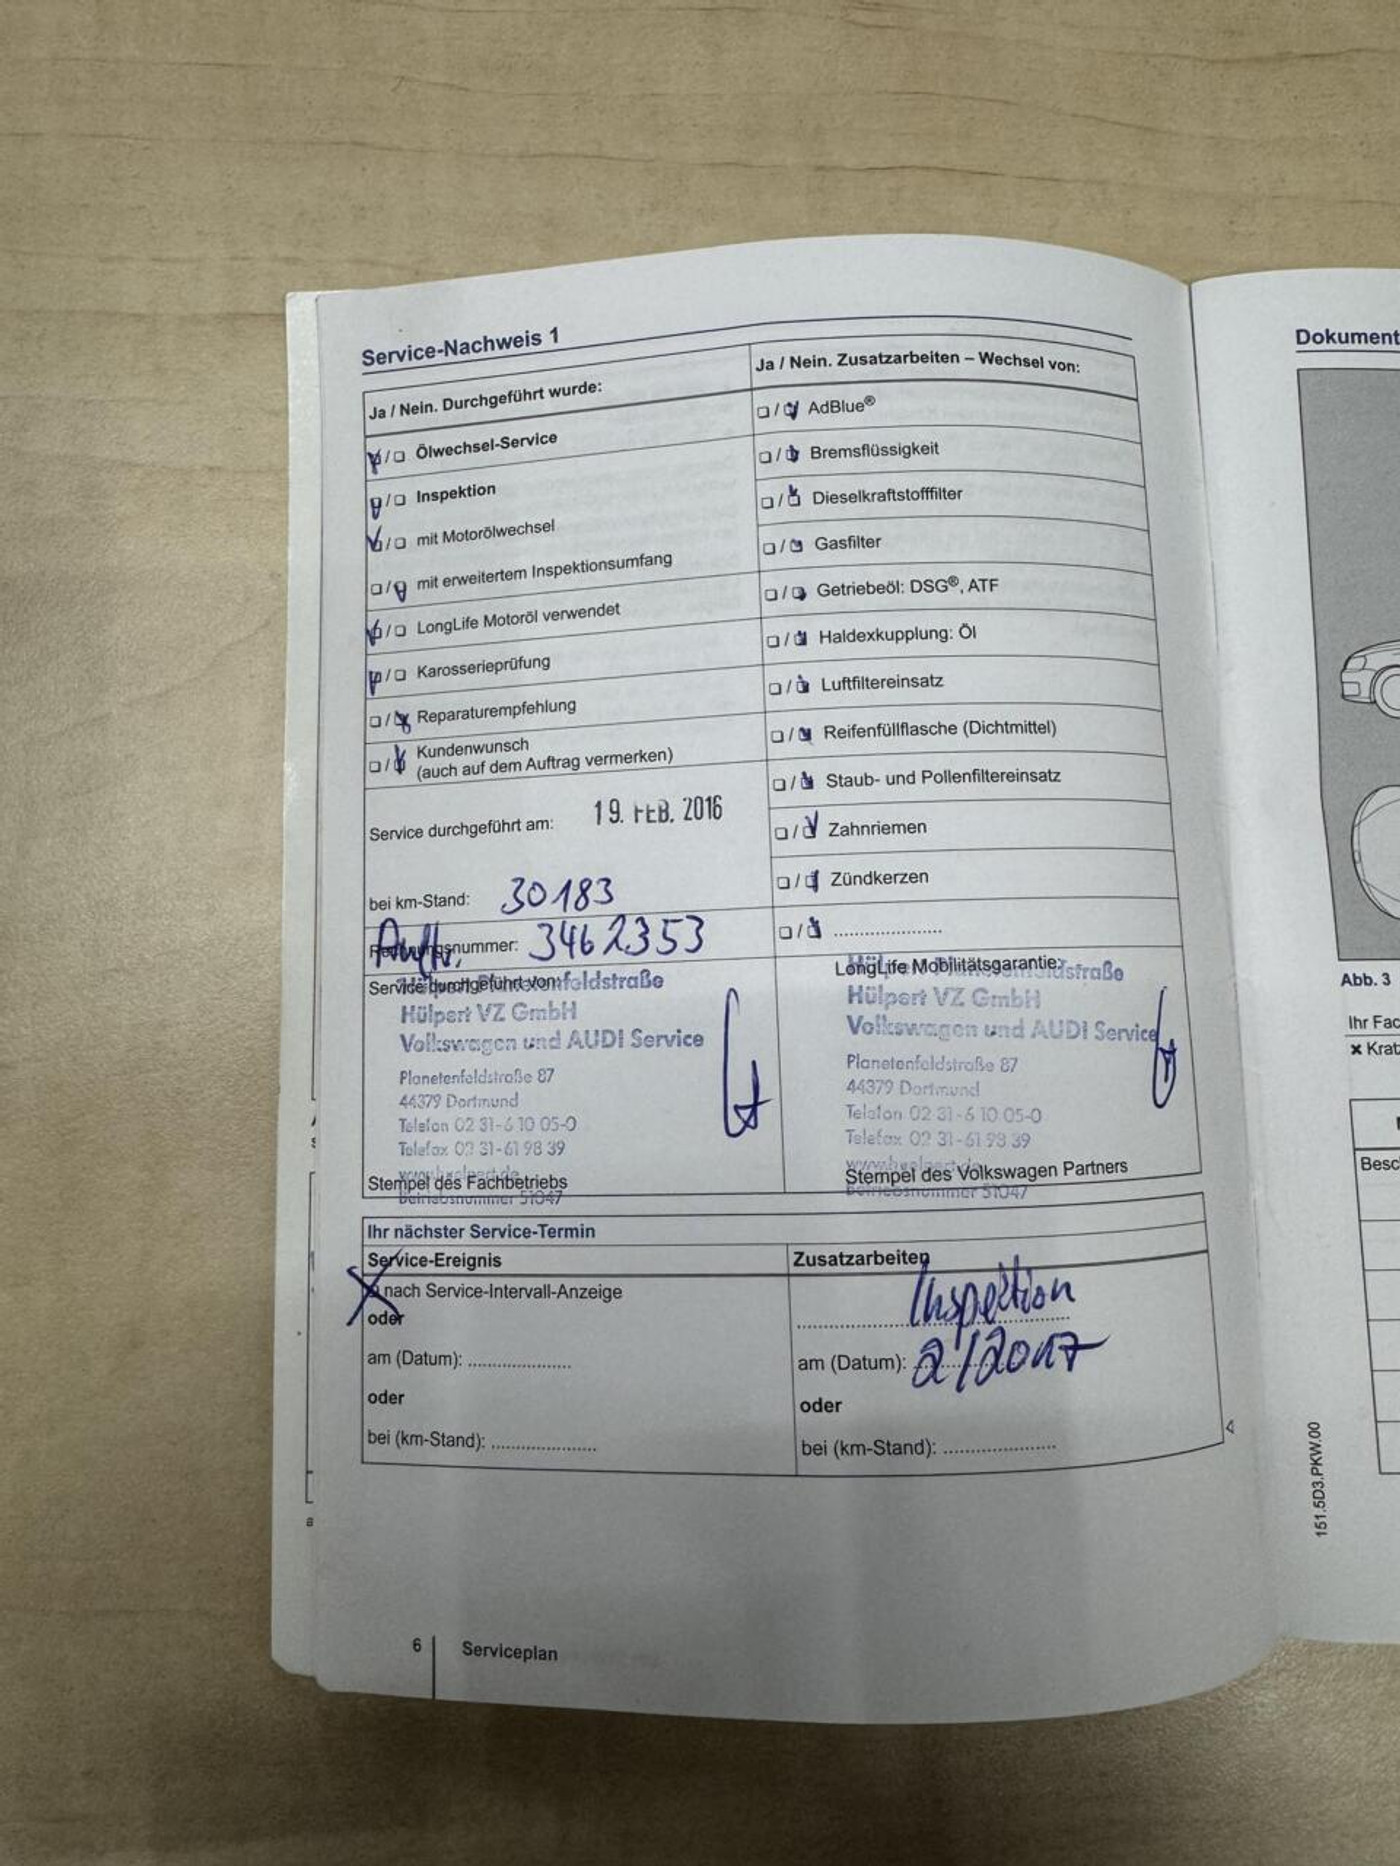 Service-Nachweis 1
Ja / Nein. Durchgeführt wurde:
Ölwechsel-Service
Inspektion
mit Motorölwechsel
mit erweitertem Inspektionsumfang
LongLife Motoröl verwendet
Karosserieprüfung
Reparaturempfehlung
Kundenwunsch
(auch auf dem Auftrag vermerken)
Service durchgeführt am: 19. FEB. 2016
bei km-Stand: 30183
Rechnungsnummer: 3462353
Auftr.
Service durchgeführt von:
Hülpert Planetenfeldstraße
Hülpert VZ GmbH
Volkswagen und AUDI Service
Planetenfeldstraße 87
44379 Dortmund
Telefon 02 31-6 10 05-0
Telefax 02 31-61 98 39
www.huelpert.de
Stempel des Fachbetriebs
Betriebsnummer 51047
Ja / Nein. Zusatzarbeiten – Wechsel von:
AdBlue®
Bremsflüssigkeit
Dieselkraftstofffilter
Gasfilter
Getriebeöl: DSG®, ATF
Haldexkupplung: Öl
Luftfiltereinsatz
Reifenfüllflasche (Dichtmittel)
Staub- und Pollenfiltereinsatz
Zahnriemen
Zündkerzen
....................
LongLife Mobilitätsgarantie:
Hülpert Planetenfeldstraße
Hülpert VZ GmbH
Volkswagen und AUDI Service
Planetenfeldstraße 87
44379 Dortmund
Telefon 02 31-6 10 05-0
Telefax 02 31-61 98 39
www.huelpert.de
Stempel des Volkswagen Partners
Betriebsnummer 51047
Ihr nächster Service-Termin
Service-Ereignis
nach Service-Intervall-Anzeige
oder
am (Datum): ....................
oder
bei (km-Stand): ....................
Zusatzarbeiten
Inspektion
am (Datum): 2/2017
oder
bei (km-Stand): ....................
6 Serviceplan
Dokument
Abb. 3
Ihr Fac
× Krat
Besc
151.5D3.PKW.00